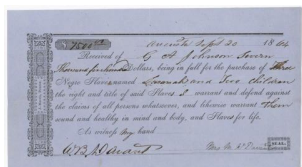 $ 7500.00 Sept 20 1864
Received of G A Johnson Seven
Thousand five hundred Dollars, being in full for the purchase of Three
Negro Slaves named and Two Children
the right and title of said Slaves I warrant and defend against
the claims of all persons whatsoever, and likewise warrant them
sound and healthy in mind and body, and Slaves for life.
As witness my hand
SEAL.